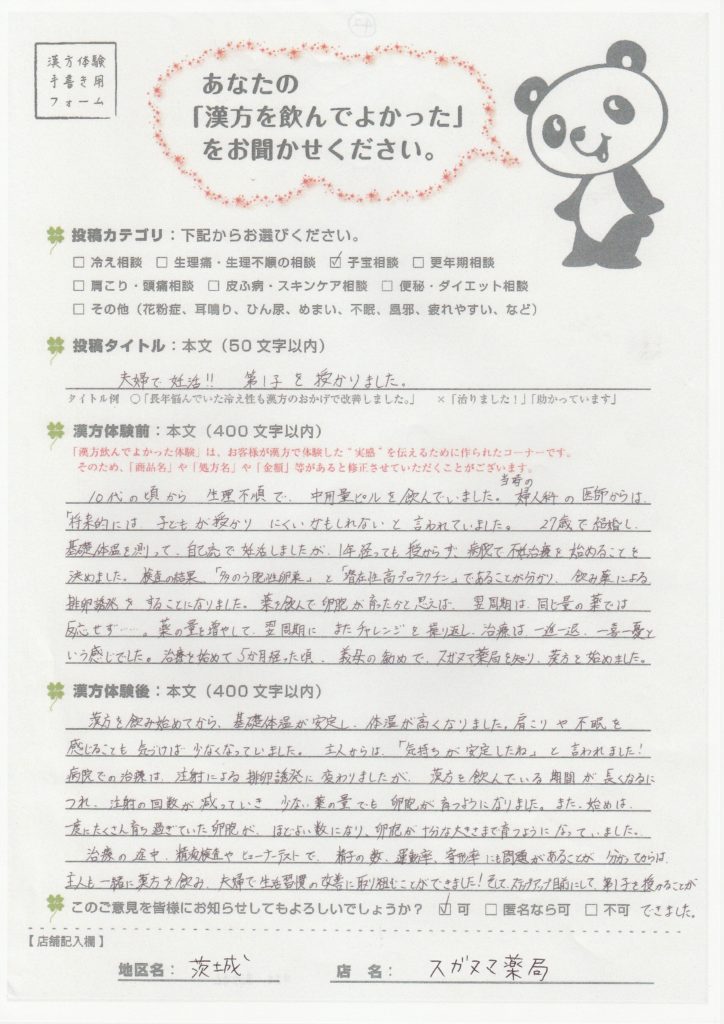 漢方体験
手書き用
フォーム
あなたの
「漢方を飲んでよかった」
をお聞かせください。
投稿カテゴリ：下記からお選びください。
□ 冷え相談 □ 生理痛・生理不順の相談 ☑ 子宝相談 □ 更年期相談
□ 肩こり・頭痛相談 □ 皮ふ病・スキンケア相談 □ 便秘・ダイエット相談
□ その他（花粉症、耳鳴り、ひん尿、めまい、不眠、風邪、疲れやすい、など）
投稿タイトル：本文（50文字以内）
夫婦で妊活!! 第1子を授かりました。
タイトル例 ○「長年悩んでいた冷え性も漢方のおかげで改善しました。」 ×「治りました！」「助かっています」
漢方体験前：本文（400文字以内）
「漢方飲んでよかった体験」は、お客様が漢方で体験した"実感"を伝えるために作られたコーナーです。
そのため、「商品名」や「処方名」や「金額」等があると修正させていただくことがございます。
10代の頃から 生理不順で、中用量ピルを飲んでいました。当時の婦人科の医師からは、
「将来的には、子どもが授かりにくいかもしれないと言われていました。 27歳で結婚し、
基礎体温を測って、自己流で妊活しましたが、1年経っても授からず、病院で不妊治療を始めることを
決めました。検査の結果、「多のう胞性卵巣」と「潜在性高プロラクチン」であることが分かり、飲み薬による
排卵誘発をすることになりました。薬を飲んで卵胞が育ったかと思えば、翌周期は、同じ量の薬では
反応せず……。薬の量を増やして、翌周期にまたチャレンジを繰り返し、治療は一進一退、一喜一憂と
いう感じでした。治療を始めて5か月経った頃、義母の勧めで、スガヌマ薬局を知り、漢方を始めました。
漢方体験後：本文（400文字以内）
漢方を飲み始めてから、基礎体温が安定し、体温が高くなりました。肩こりや不眠を
感じることも気づけば少なくなっていました。主人からは、「気持ちが安定したね」と言われました！
病院での治療は、注射による排卵誘発に変わりましたが、漢方を飲んでいる期間が長くなるに
つれ、注射の回数が減っていき、少ない薬の量でも卵胞が育つようになりました。また、始めは、
一度にたくさん育ち過ぎていた卵胞が、ほどよい数になり、卵胞が十分な大きさまで育つようになっていました。
治療の途中、精液検査やヒューナーテストで、精子の数、運動率、奇形率にも問題があることが分かってからは、
主人も一緒に漢方を飲み、夫婦で生活習慣の改善に取り組むことができました！そして、ステップアップ目前にして、第1子を授かることが
できました。
このご意見を皆様にお知らせしてもよろしいでしょうか？ ☑ 可 □ 匿名なら可 □ 不可
【店舗記入欄】
地区名： 茨城 店 名： スガヌマ薬局